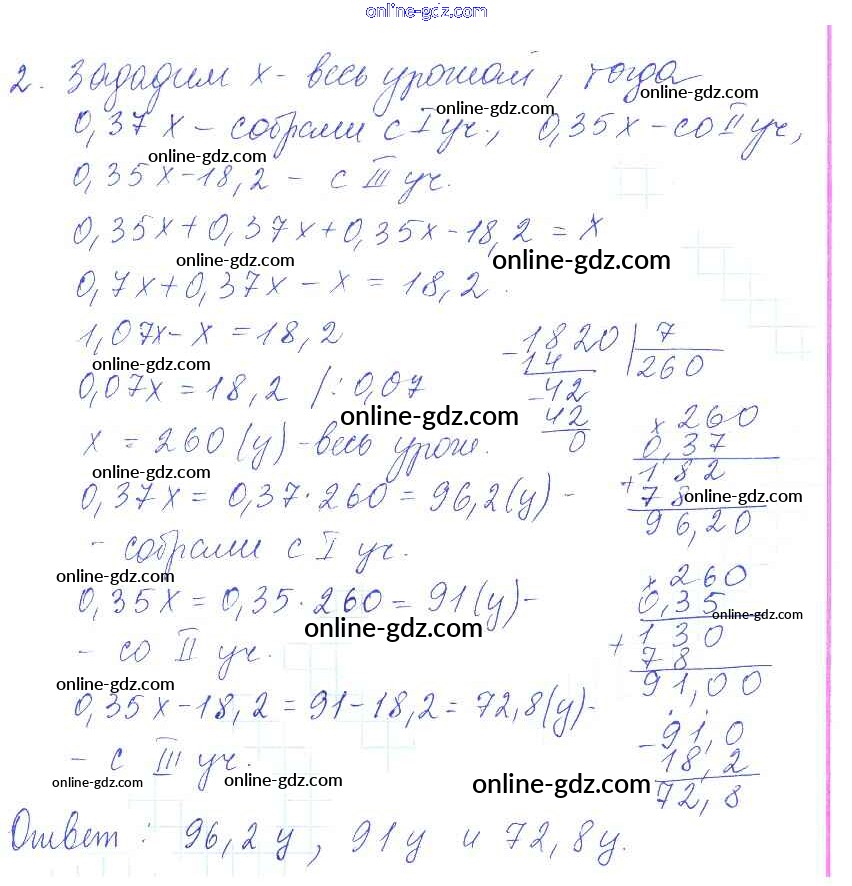 online-gdz.com
2. Зададим х - весь урожай, тогда
online-gdz.com online-gdz.com
0,37х – собрали с I уч., 0,35х – со II уч,
online-gdz.com
0,35х – 18,2 – с III уч.
0,35х + 0,37х + 0,35х – 18,2 = х
online-gdz.com online-gdz.com
0,7х + 0,37х – х = 18,2.
1,07х – х = 18,2
online-gdz.com
0,07х = 18,2 /: 0,07
online-gdz.com
х = 260 (ц) – весь урож.
online-gdz.com
0,37х = 0,37 · 260 = 96,2 (ц) –
– собрали с I уч.
online-gdz.com
0,35х = 0,35 · 260 = 91 (ц) –
online-gdz.com
– со II уч.
online-gdz.com
0,35х – 18,2 = 91 – 18,2 = 72,8 (ц) –
– с III уч.
online-gdz.com online-gdz.com online-gdz.com
Ответ: 96,2 ц, 91 ц и 72,8 ц.
- 1820 | 7
14 260
- 42
42
0
× 260
0,37
+ 182
78 online-gdz.com
96,20
× 260
0,35 online-gdz.com
+ 130
78
91,00
- 91,0
18,2
72,8